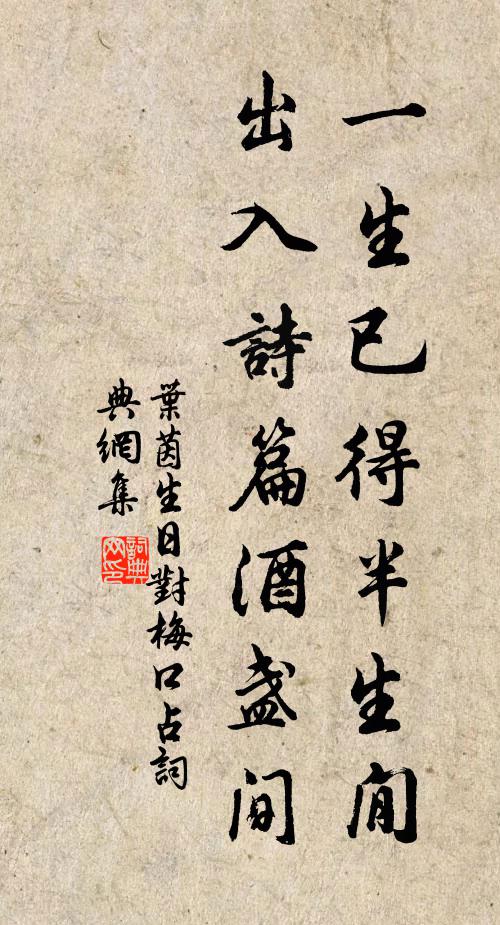 一生已得半生閒
出入詩篇酒盞間
葉茵生日對梅口占詞
典網集
詞典網印